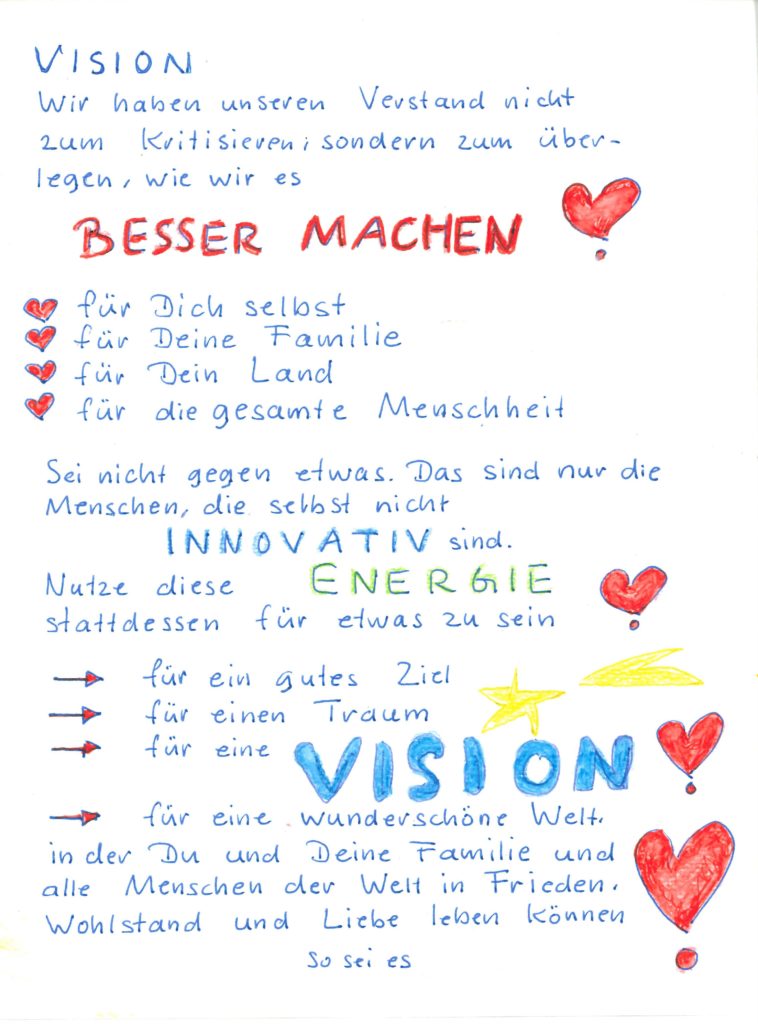 VISION
Wir haben unseren Verstand nicht
zum Kritisieren, sondern zum über-
legen, wie wir es
BESSER MACHEN
für Dich selbst
für Deine Familie
für Dein Land
für die gesamte Menschheit
Sei nicht gegen etwas. Das sind nur die
Menschen, die selbst nicht
INNOVATIV sind.
Nutze diese ENERGIE
stattdessen für etwas zu sein
für ein gutes Ziel
für einen Traum
für eine VISION
für eine wunderschöne Welt,
in der Du und Deine Familie und
alle Menschen der Welt in Frieden,
Wohlstand und Liebe leben können
So sei es